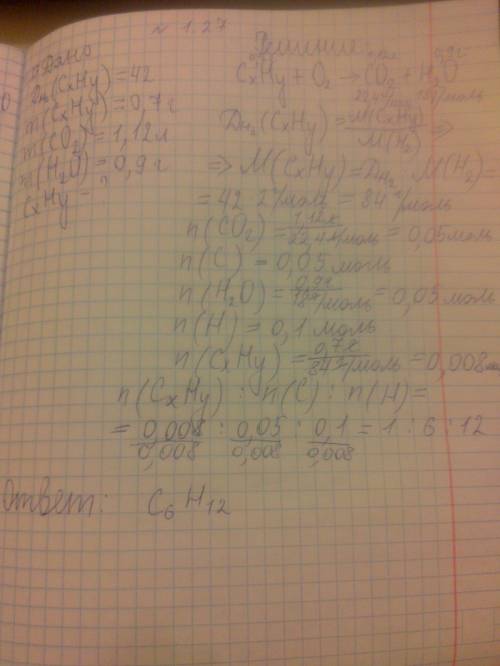 № 1.27
Дано
D_H₂(CxHy) = 42
m(CxHy) = 0,7 г
m(CO₂) = 1,12 л
m(H₂O) = 0,9 г
CxHy - ?
Решение:
0,9 г
CxHy + O₂ → CO₂ + H₂O
22,4 л/моль 18 г/моль
D_H₂(CxHy) = M(CxHy)/M(H₂) ⇒
⇒ M(CxHy) = D_H₂ · M(H₂) =
= 42 · 2 г/моль = 84 г/моль
n(CO₂) = 1,12 л/22,4 л/моль = 0,05 моль
n(C) = 0,05 моль
n(H₂O) = 0,9 г/18 г/моль = 0,05 моль
n(H) = 0,1 моль
n(CxHy) = 0,7 г/84 г/моль = 0,008
n(CxHy) : n(C) : n(H) =
= 0,008/0,008 : 0,05/0,008 : 0,1/0,008 = 1 : 6 : 12
Ответ: C₆H₁₂